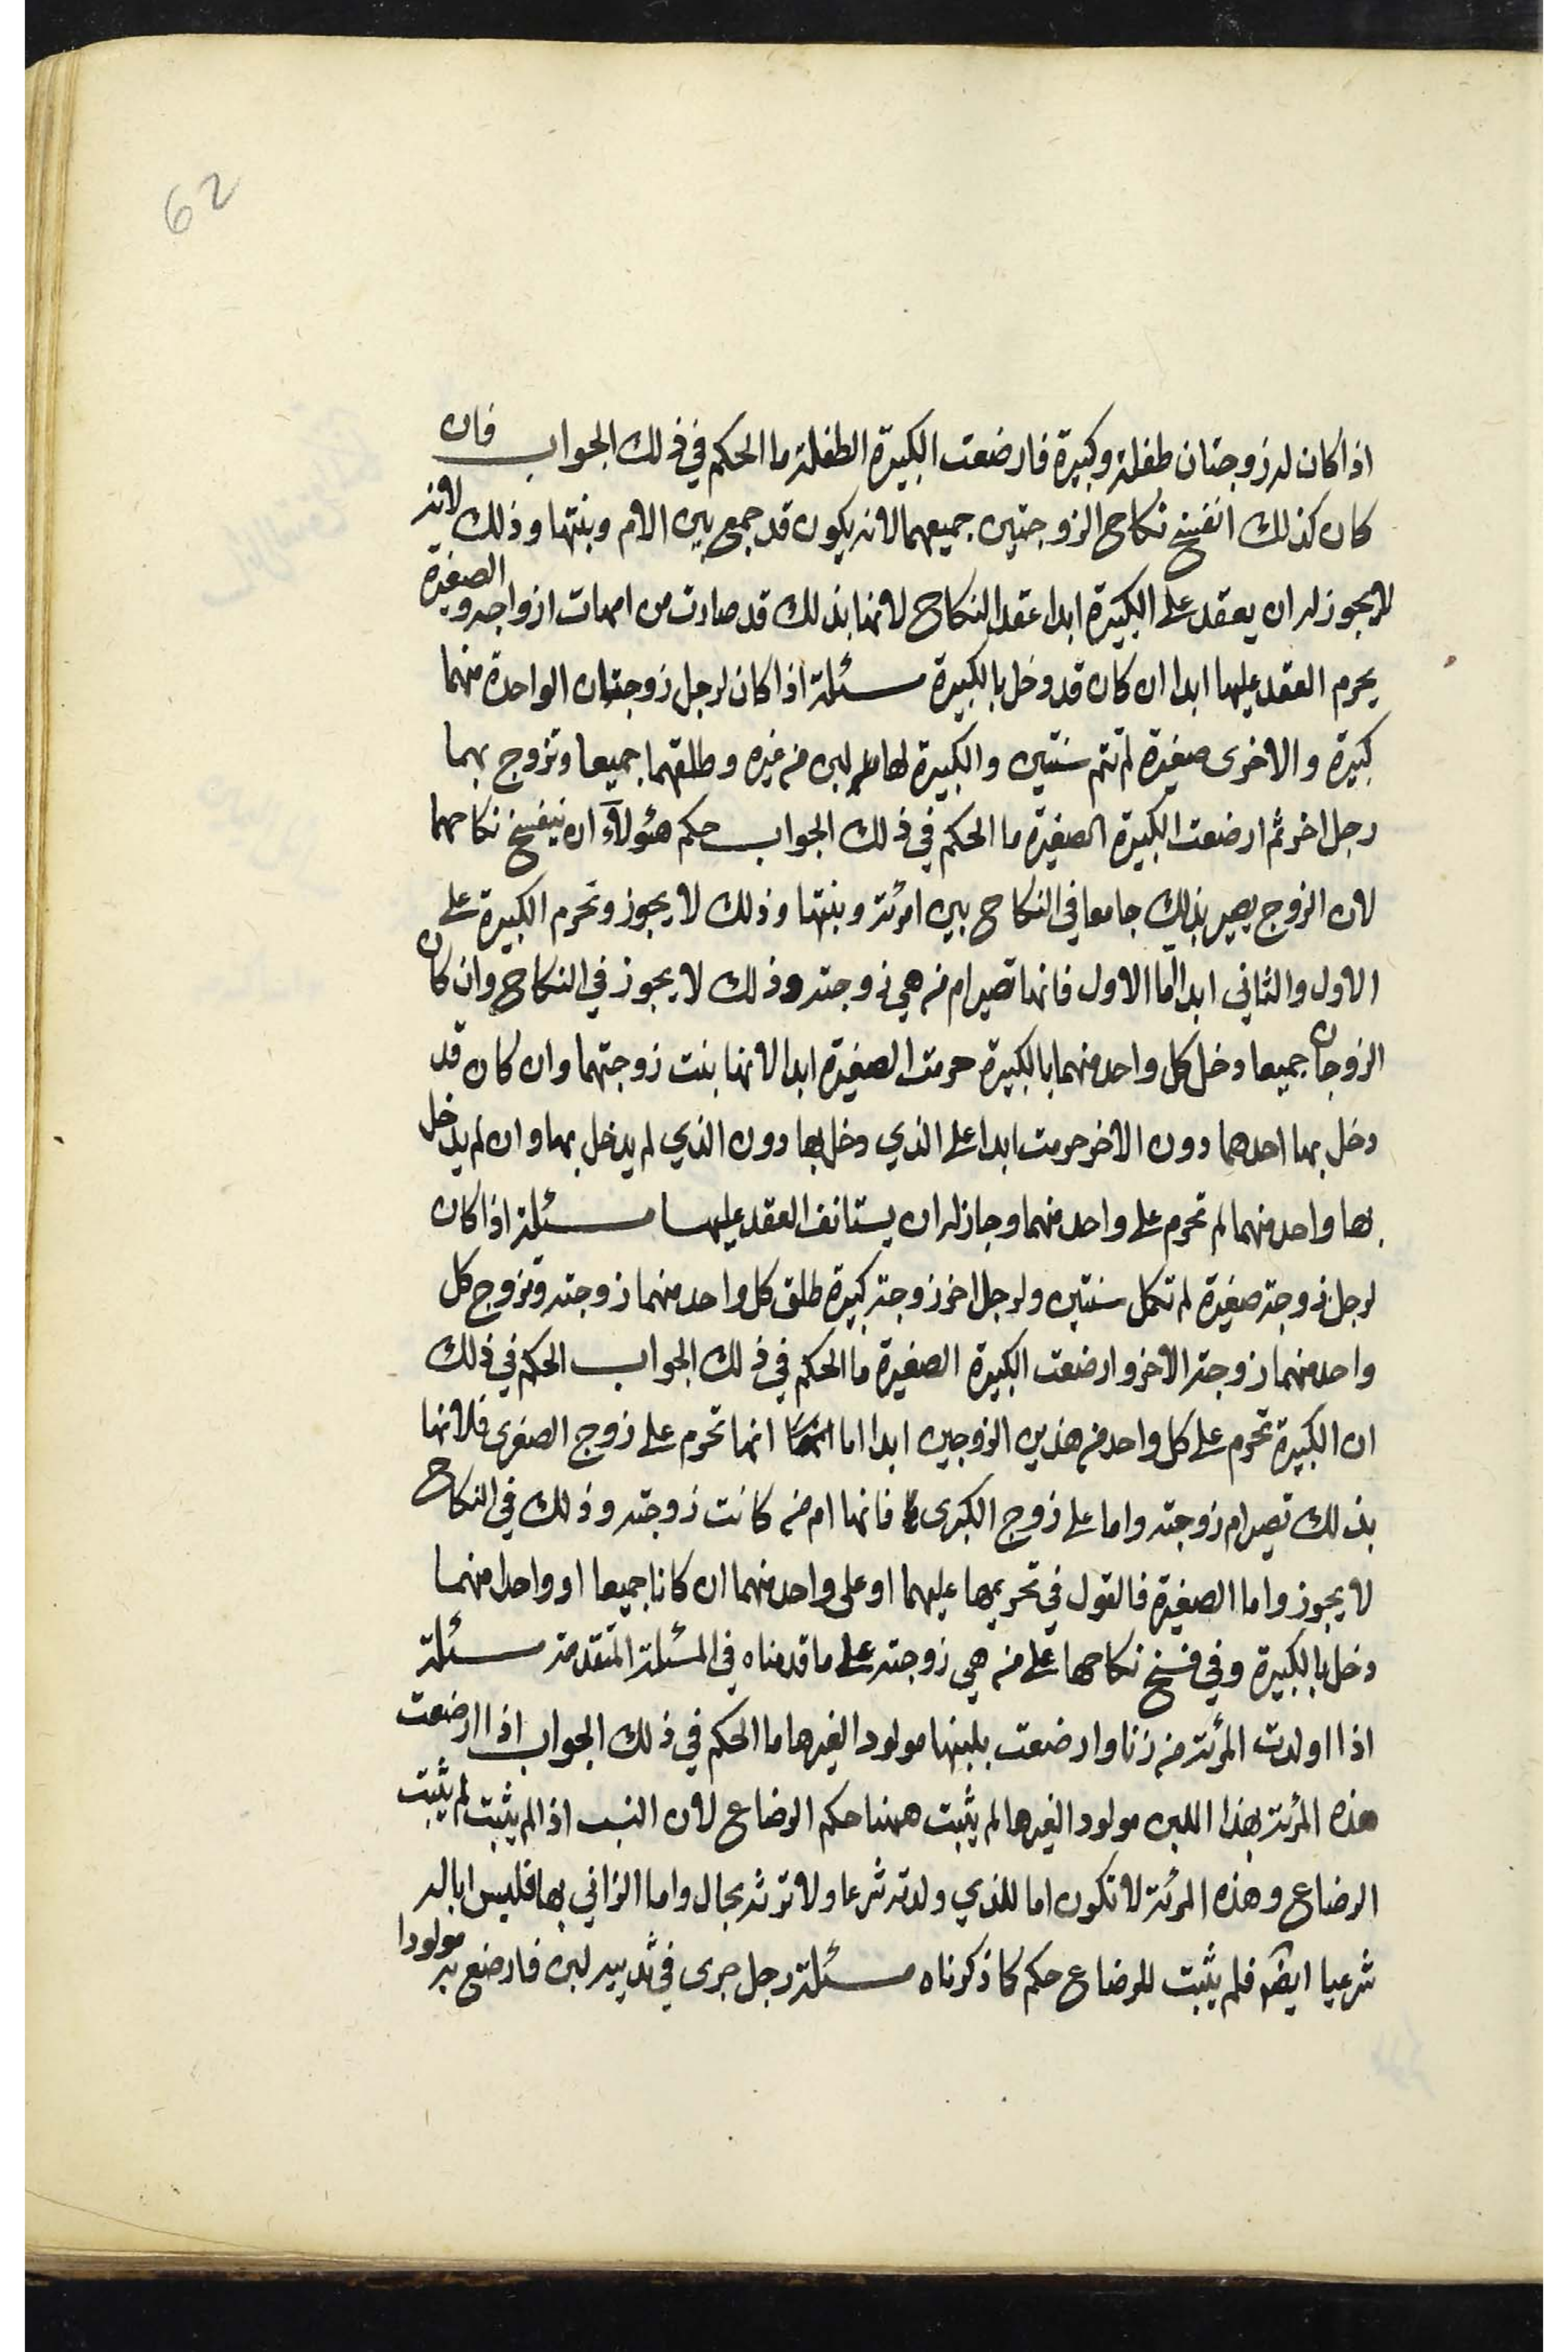 62
اذا كان له زوجتان طفلة وكبيرة فارضعت الكبيرة الطفلة ما الحكم في ذلك الجواب فان
كان كذلك انفسخ نكاح الزوجتين جميعهما لانه يكون قد جمع بين الام وبنتها وذلك لانه
لا يجوز له ان يعقد على الكبيرة ابدا عقد النكاح لانها بذلك قد صارت من امهات ازواجه والصغيرة
يحرم العقد عليها ابدا ان كان قد دخل بالكبيرة مسئلة اذا كان لرجل زوجتان الواحدة منهما
كبيرة والاخرى صغيرة لم تتم سنتين والكبيرة لها لبن من غيره وطلقهما جميعا وتزوج بهما
رجل اخر ثم ارضعت الكبيرة الصغيرة ما الحكم في ذلك الجواب حكم هئولآء ان ينفسخ نكاحهما
لان الزوج يصير بذلك جامعا في النكاح بين امرئة وبنتها وذلك لا يجوز وتحرم الكبيرة على
الاول والثاني ابدا اما الاول فانها تصير ام من هي زوجته وذلك لا يجوز في النكاح وان كان
الزوجان جميعا دخل كل واحد منهما بالكبيرة حرمت الصغيرة ابدا لانها بنت زوجتهما وان كان قد
دخل بها احدهما دون الاخر حرمت ابدا على الذي دخل بها دون الذي لم يدخل بها وان لم يدخل
بها واحد منهما لم تحرم على واحد منهما وجاز له ان يستانف العقد عليها مسئلة اذا كان
لرجل زوجة صغيرة لم تكمل سنتين ولرجل اخر زوجة كبيرة طلق كل واحد منهما زوجته وتزوج كل
واحد منهما زوجة الاخر وارضعت الكبيرة الصغيرة ما الحكم في ذلك الجواب الحكم في ذلك
ان الكبيرة تحرم على كل واحد من هذين الزوجين ابدا اما انها تحرم على زوج الصغرى فلانها
بذلك تصير ام زوجته واما على زوج الكبرى فانها ام من كانت زوجته وذلك في النكاح
لا يجوز واما الصغيرة فالقول في تحريمها عليهما او على واحد منهما ان كانا جميعا او واحدا منهما
دخل بالكبيرة وفي فسخ نكاحها على من هي زوجته على ما قدمناه في المسئلة المتقدمة مسئلة
اذا اولدت المرئة من زنا وارضعت بلبنها مولودا لغيرها ما الحكم في ذلك الجواب اذا ارضعت
هذه المرئة بهذا اللبن مولودا لغيرها لم يثبت ههنا حكم الرضاع لان النسب اذا لم يثبت لم يثبت
الرضاع وهذه المرئة لا تكون اما للذي ولدته شرعا ولا ترثه بحال واما الزاني بها فليس ابا له
شرعيا ايضا فلم يثبت للرضاع حكم كما ذكرناه مسئلة رجل جرى في ثدييه لبن فارضع به مولودا